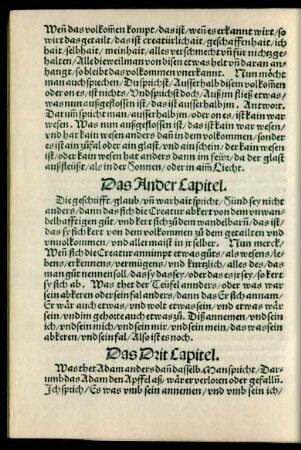 Weñ das volkom̃en kompt / das ist / weñ es erkannt wirt / so
wirt das getailt / das ist creatürlichait / geschaffenhait / ich
hait / selbhait / meinhait / alles verschmecht vñ für nichtz ge-
halten / Alle die weil man von disen etwas helt vñ daran an-
hangt / so bleibt das volkommen vnerkannt. Nun möcht
man auch sprechen / Du sprichst / Ausserhalb disem volkom̃en
oder on es / ist nichts / Vnd sprichst doch / Auß im fließ etwas /
was nun außgeflossen ist / das ist ausserhalb jm. Antwort.
Darum̃ spricht man / ausserhalb jm / oder on es / ist kain war
wesen. Was nun außgeflossen ist / das ist kain war wesen /
vnd hat kain wesen anders dañ in dem volkommen / sonder
es ist ain zůfal oder ain glast / vnd ain schein / der kain wesen
ist / oder kain wesen hat anders dann im feür / da der glast
außfleüßt / als in der Sonnen / oder in aim Liecht.
Das Ander Capitel.
Die geschrifft / glaub / vñ warhait spricht / Sünd sey nicht
anders / dann das sich die Creatur abkert von dem vnwan-
delhafftigen gůt / vnd kert sich zů dem wandelbarñ / das ist /
das sy sich kert von dem volkommen zů dem getailten vnd
vnuolkommen / vnd aller maist in jr selber. Nun merck /
Weñ sich die Creatur annimpt etwas gůts / als wesens / le-
bens / erkennens / vermügens / vnd kurtzlich / alles des / das
man gůt nennen soll / das sy das sey / oder das es jr sey / so kert
sy sich ab. Was thet der Teüfel annders / oder was war
sein abkeren oder sein fal anders / dann das Er sich annam /
Er wär auch etwas / vnd wolt etwas sein / vnd etwas wär
sein / vnd im gehorte auch etwas zů. Diß annemen / vnd sein
ich / vnd sein mich / vnd sein mir / vnd sein mein / das was sein
abkeren / vnd sein fal / Also ist es noch.
Das Drit Capitel.
Was thet Adam anders dañ dasselb. Man spricht / Dar-
umb das Adam den Apffel aß / wär er verloren oder gefalln̄.
Ich sprich / Es was vmb sein annemen / vnd vmb sein ich /